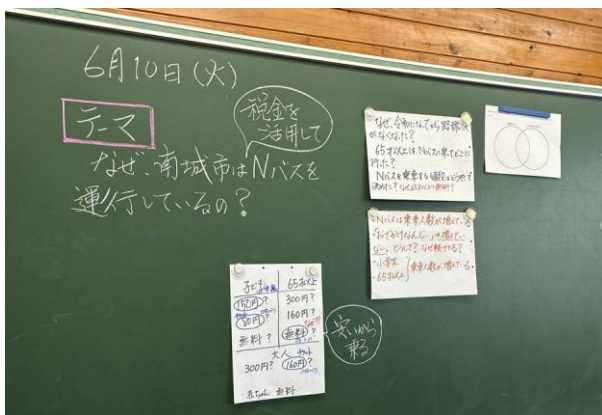 6月10日(火)
テーマ
税金を
活用して
なぜ、南城市はNバスを
運行しているの?
なぜ、令和になってから路線
がなくなった?
65才以上はNバスの乗てどこに
行った?
Nバスを乗車する値段はどうやって
決めた?
Nバスは乗車人数が増えている
「おでかけなんじぃ」は増えてい
ない。どうして?なぜ続けてる?
・小学生
・65才以上
乗車人数が増えている。
子ども
65才以上
150円?
300円?
80円?
160円?
無料?
無料?
大人
300円?
160円?
赤ちゃん 無料
安いから
乗る